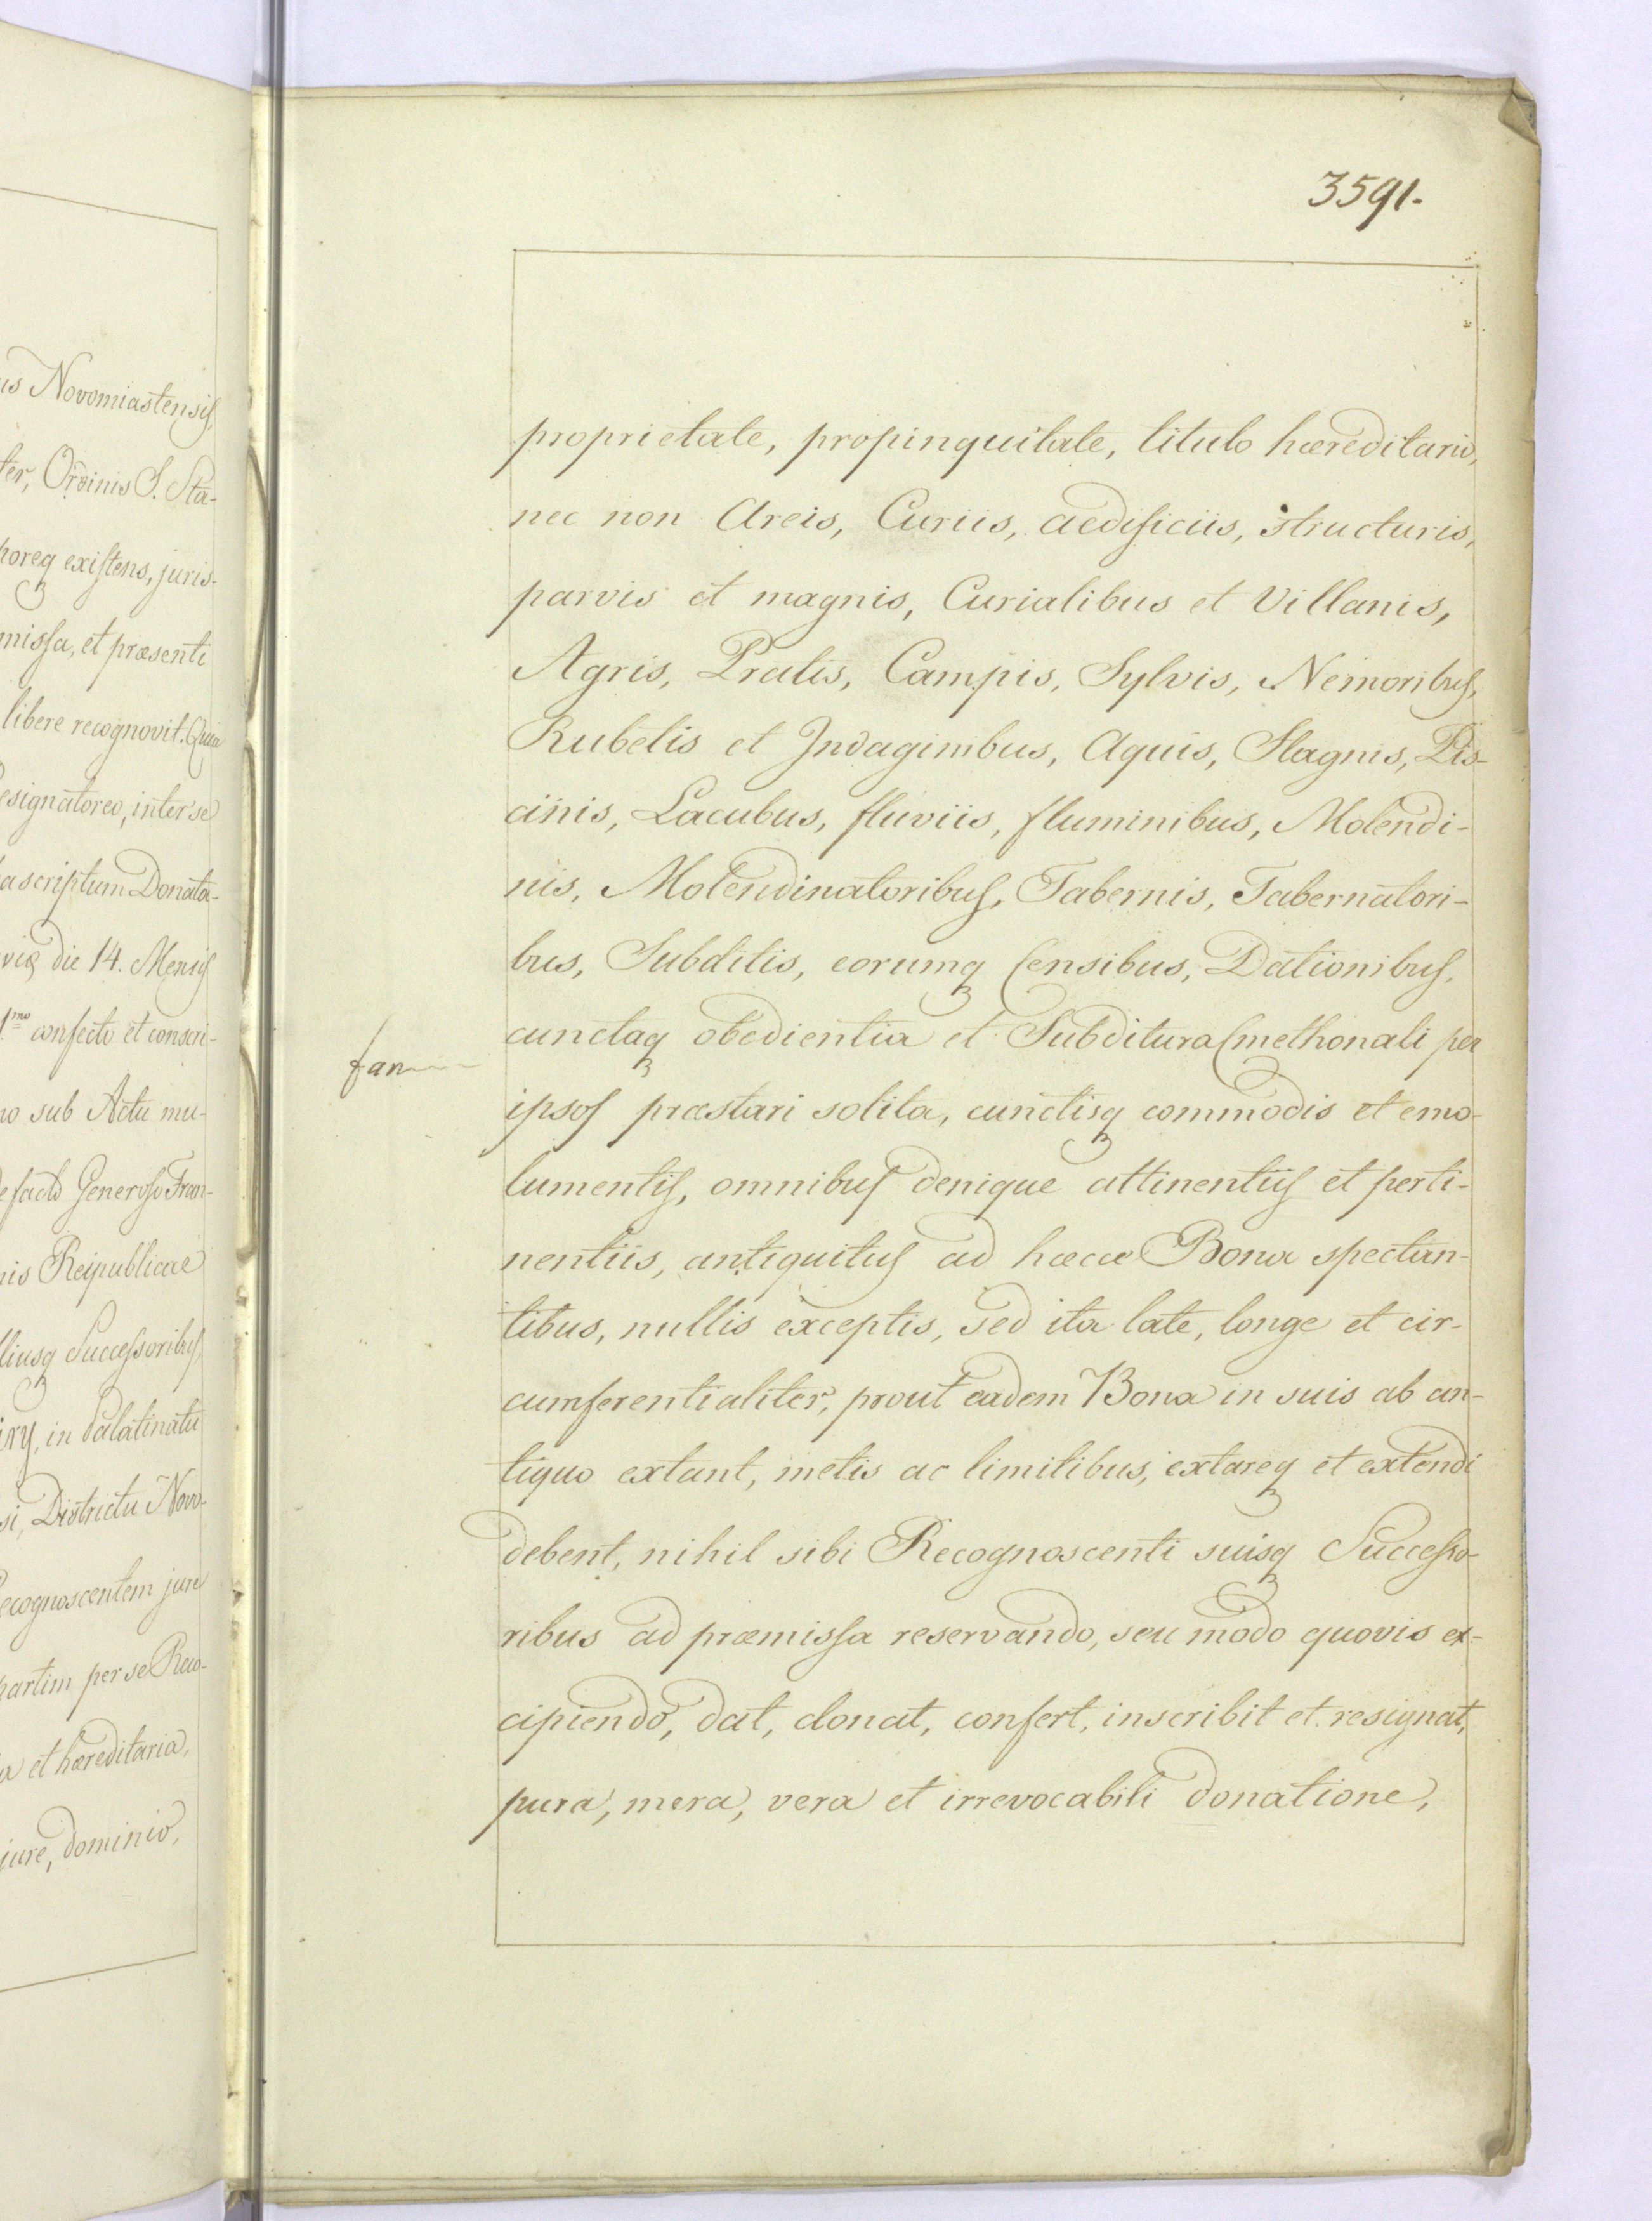 us Novomiastensis,
ter, Ordinis S. Sta-
poreq existens, juris-
missa, et præsenti
libere recognovit. Quia
esignatores, inter se
ascriptum Donata-
die 14. Mensis
1mo confecto et conscri-
no sub Actu mu-
facto Generoso Fran-
nis Reipublicae
lliusq Successoribus,
in Palatinatu
si, Districtu Novo-
ecognoscentem jure
partim per se Reco-
a et hæreditaria,
jure, dominio,
3591.
proprietate, propinquitate, titulo hæreditario,
nec non Areis, Curiis, aedificiis, structuris,
parvis et magnis, Curialibus et Villanis,
Agris, Pratis, Campis, Sylvis, Nemoribus,
Rubetis et Indaginibus, Aquis, Stagnis, Pis-
cinis, Lacubus, fluviis, fluminibus, Molendi-
nis, Molendinatoribus, Tabernis, Tabernatori-
bus, Subditis, eorumq Censibus, Dationibus,
cunctaq obedientia et Subditura Cmethonali per
fan
ipsos præstari solita, cunctisq commodis et emo-
lumentis, omnibus denique attinentiis et perti-
nentiis, antiquitus ad hæcce Bona spectan-
tibus, nullis exceptis, sed ita late, longe et cir-
cumferentialiter, prout eadem Bona in suis ab an-
tiquo extant, metis ac limitibus, extareq et extendi
debent, nihil sibi Recognoscenti suisq Successo-
ribus ad præmissa reservando, seu modo quovis ex-
cipiendo, dat, donat, confert, inscribit et resignat,
pura, mera, vera et irrevocabili donatione,